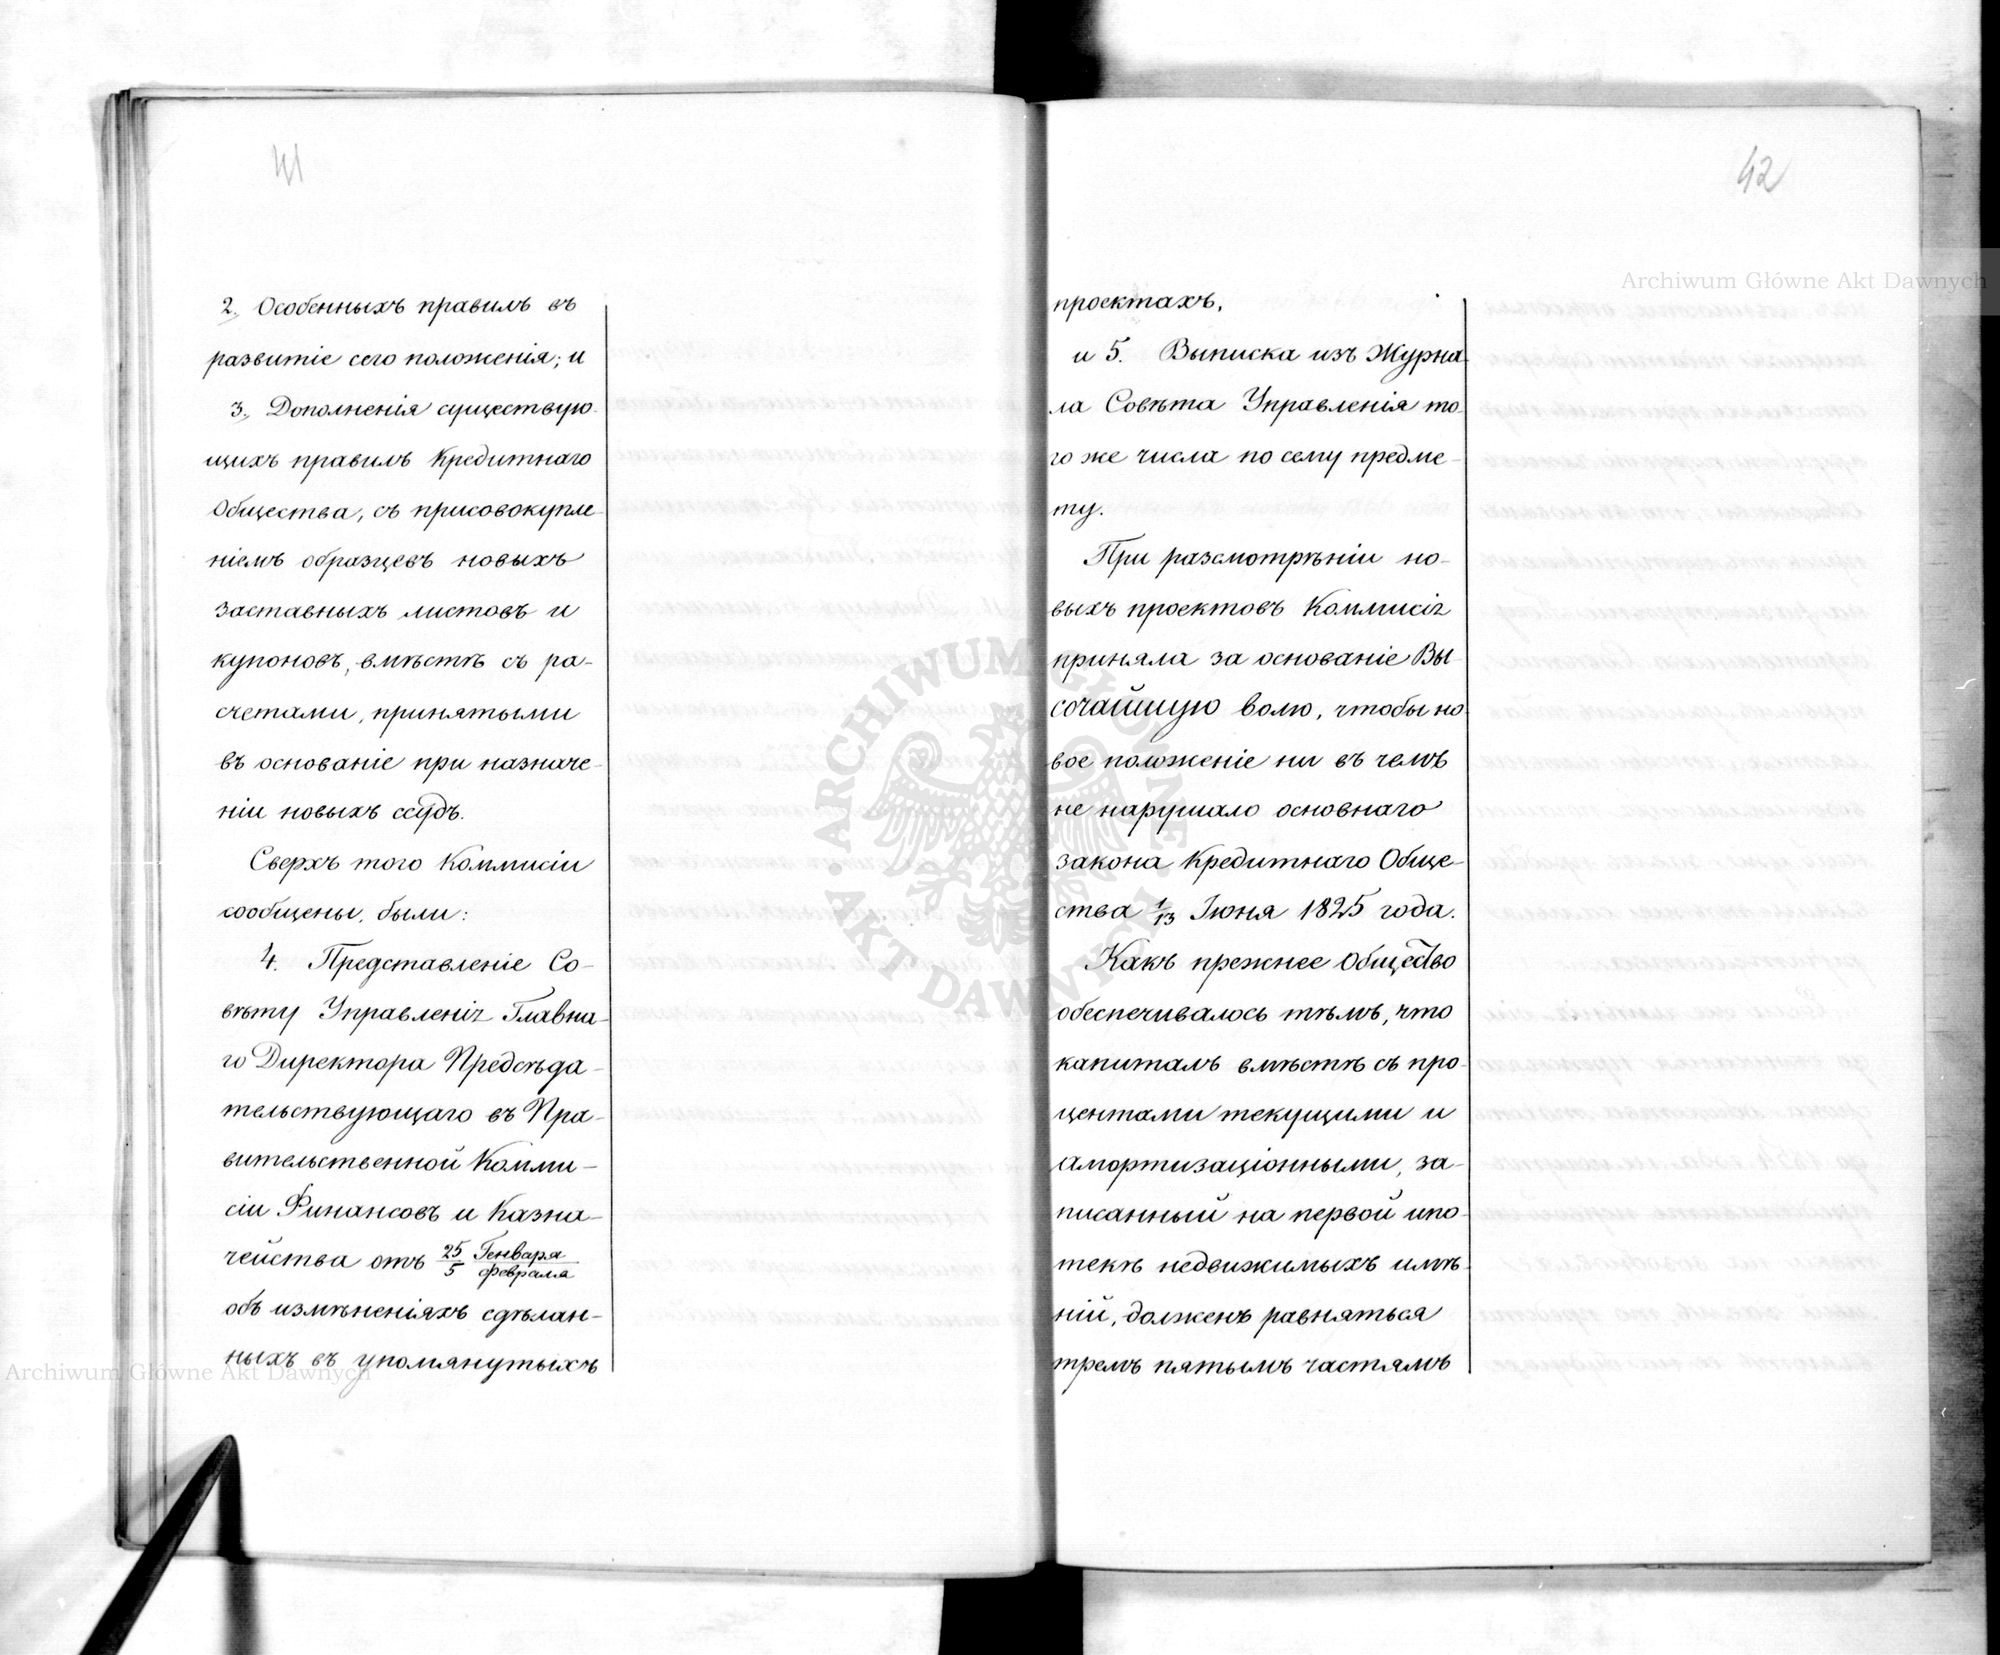 41
2. Особенныхъ правилъ въ
развитіе сего положенія; и
3. Дополненія существую-
щихъ правилъ Кредитнаго
Общества, съ присовокупле-
ніемъ образцевъ новыхъ
заставныхъ листовъ и
купоновъ, вмѣстѣ съ ра-
счетами, принятыми
въ основаніе при назначе-
ніи новыхъ ссудъ.
Сверхъ того Коммисіи
сообщены были:
4. Представленіе Со-
вѣту Управленія Главна-
го Директора Предсѣда-
тельствующаго въ Пра-
вительственной Комми-
сіи Финансовъ и Казна-
чейства отъ 25 Генваря / 5 Февраля
объ измѣненіяхъ сдѣлан-
ныхъ въ упомянутыхъ
42
проектахъ.
и 5. Выписка изъ Журна-
ла Совѣта Управленія то-
го же числа по сему предме-
ту.
При разсмотрѣніи но-
выхъ проектовъ Коммисія
приняла за основаніе Вы-
сочайшую волю, чтобы но-
вое положеніе ни въ чемъ
не нарушало основнаго
закона Кредитнаго Обще-
ства 1/13 Іюня 1825 года.
Какъ прежнее Общество
обеспечивалось тѣмъ, что
капиталъ вмѣстѣ съ про-
центами текущими и
амортизаціонными, за-
писанный на первой ипо-
текѣ недвижимыхъ имѣ-
ній, долженъ равняться
тремъ пятымъ частямъ
Archiwum Główne Akt Dawnych
Archiwum Główne Akt Dawnych
ARCHIWUM GŁÓWNE AKT DAWNYCH